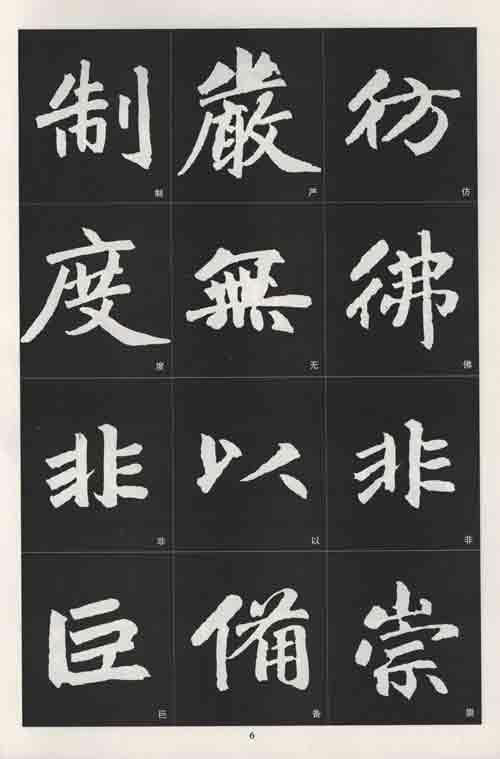 彷彿非崇
仿佛非崇
嚴無以備
严无以备
制度非巨
制度非巨
6